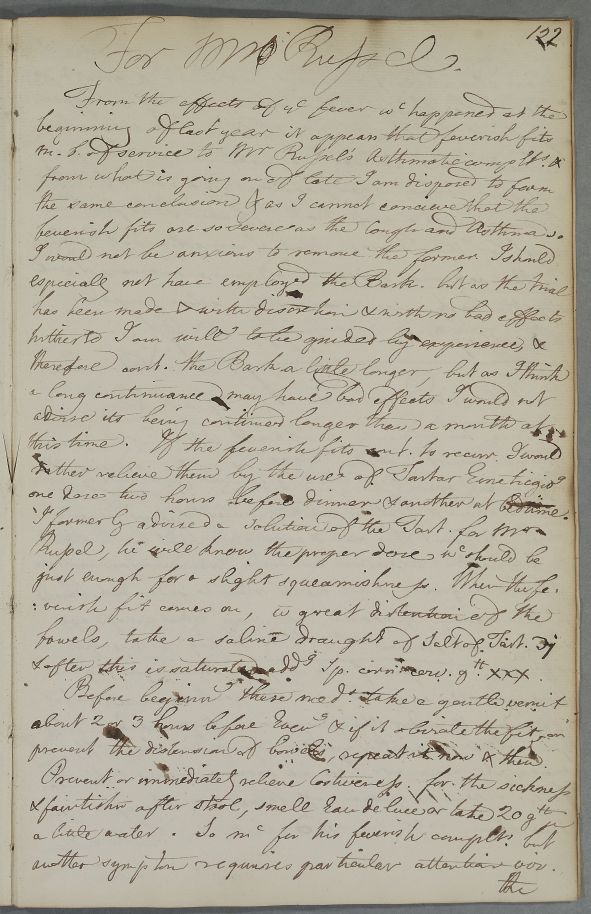 122
For Mr Russel.
From the effects of yᵉ fever wᶜ happened at the
beginning of last year it appears that feverish fits
m. b. of service to Mr Russel's Asthmatic complts. &
from what is going on of late I am disposed to form
the same conclusion & as I cannot conceive that the
feverish fits are so severe as the Cough and Asthma.
I would not be anxious to remove the former. I should
especially not have employed the Bark. but as the trial
has been made & with discretion & with no bad effects
hitherto I am willᵍ to be guided by experience, &
therefore cont. the Bark a little longer, but as I think
a long continuance may have bad effects I would not
advise its being continued longer than a month at
this time. If the feverish fits cont. to recur, I would
rather relieve them by the use of Tartar Emetic givᵍ
one dose two hours before dinner & another at
I formerly advised a solution of the Tart. for Mr
Russel, he will know the proper dose wᶜ should be
just enough for a slight squeamishness. When the fe-
:verish fit comes on, wᵗ great distention of the
bowels, take a saline draught of Salt of Tart. ʒj
& after this is saturated addᵍ Sp. corn. cerv. gᵗᵗ XXX.
Before beginnᵍ these medˢ take a gentle vomit
about 2 or 3 hours before Evenᵍ & if it obviate the fit, or
prevent the distension of bowels, repeat it now & then
Prevent or immediately relieve Costiveness. for the sickness
& faintishn after stool, smell Eau de luce or take 20 gᵗᵗ in
a little water. So mᶜ for his feverish complts. but
another symptom requires particular attention viz.
the